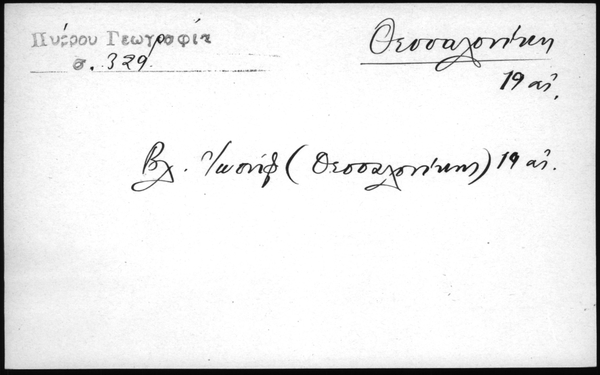 Πύρρου Γεωγραφία
σ. 329
Θεσσαλονίκη
19 αἰ.
Βλ. Ἰωσήφ (Θεσσαλονίκης) 19 αἰ.